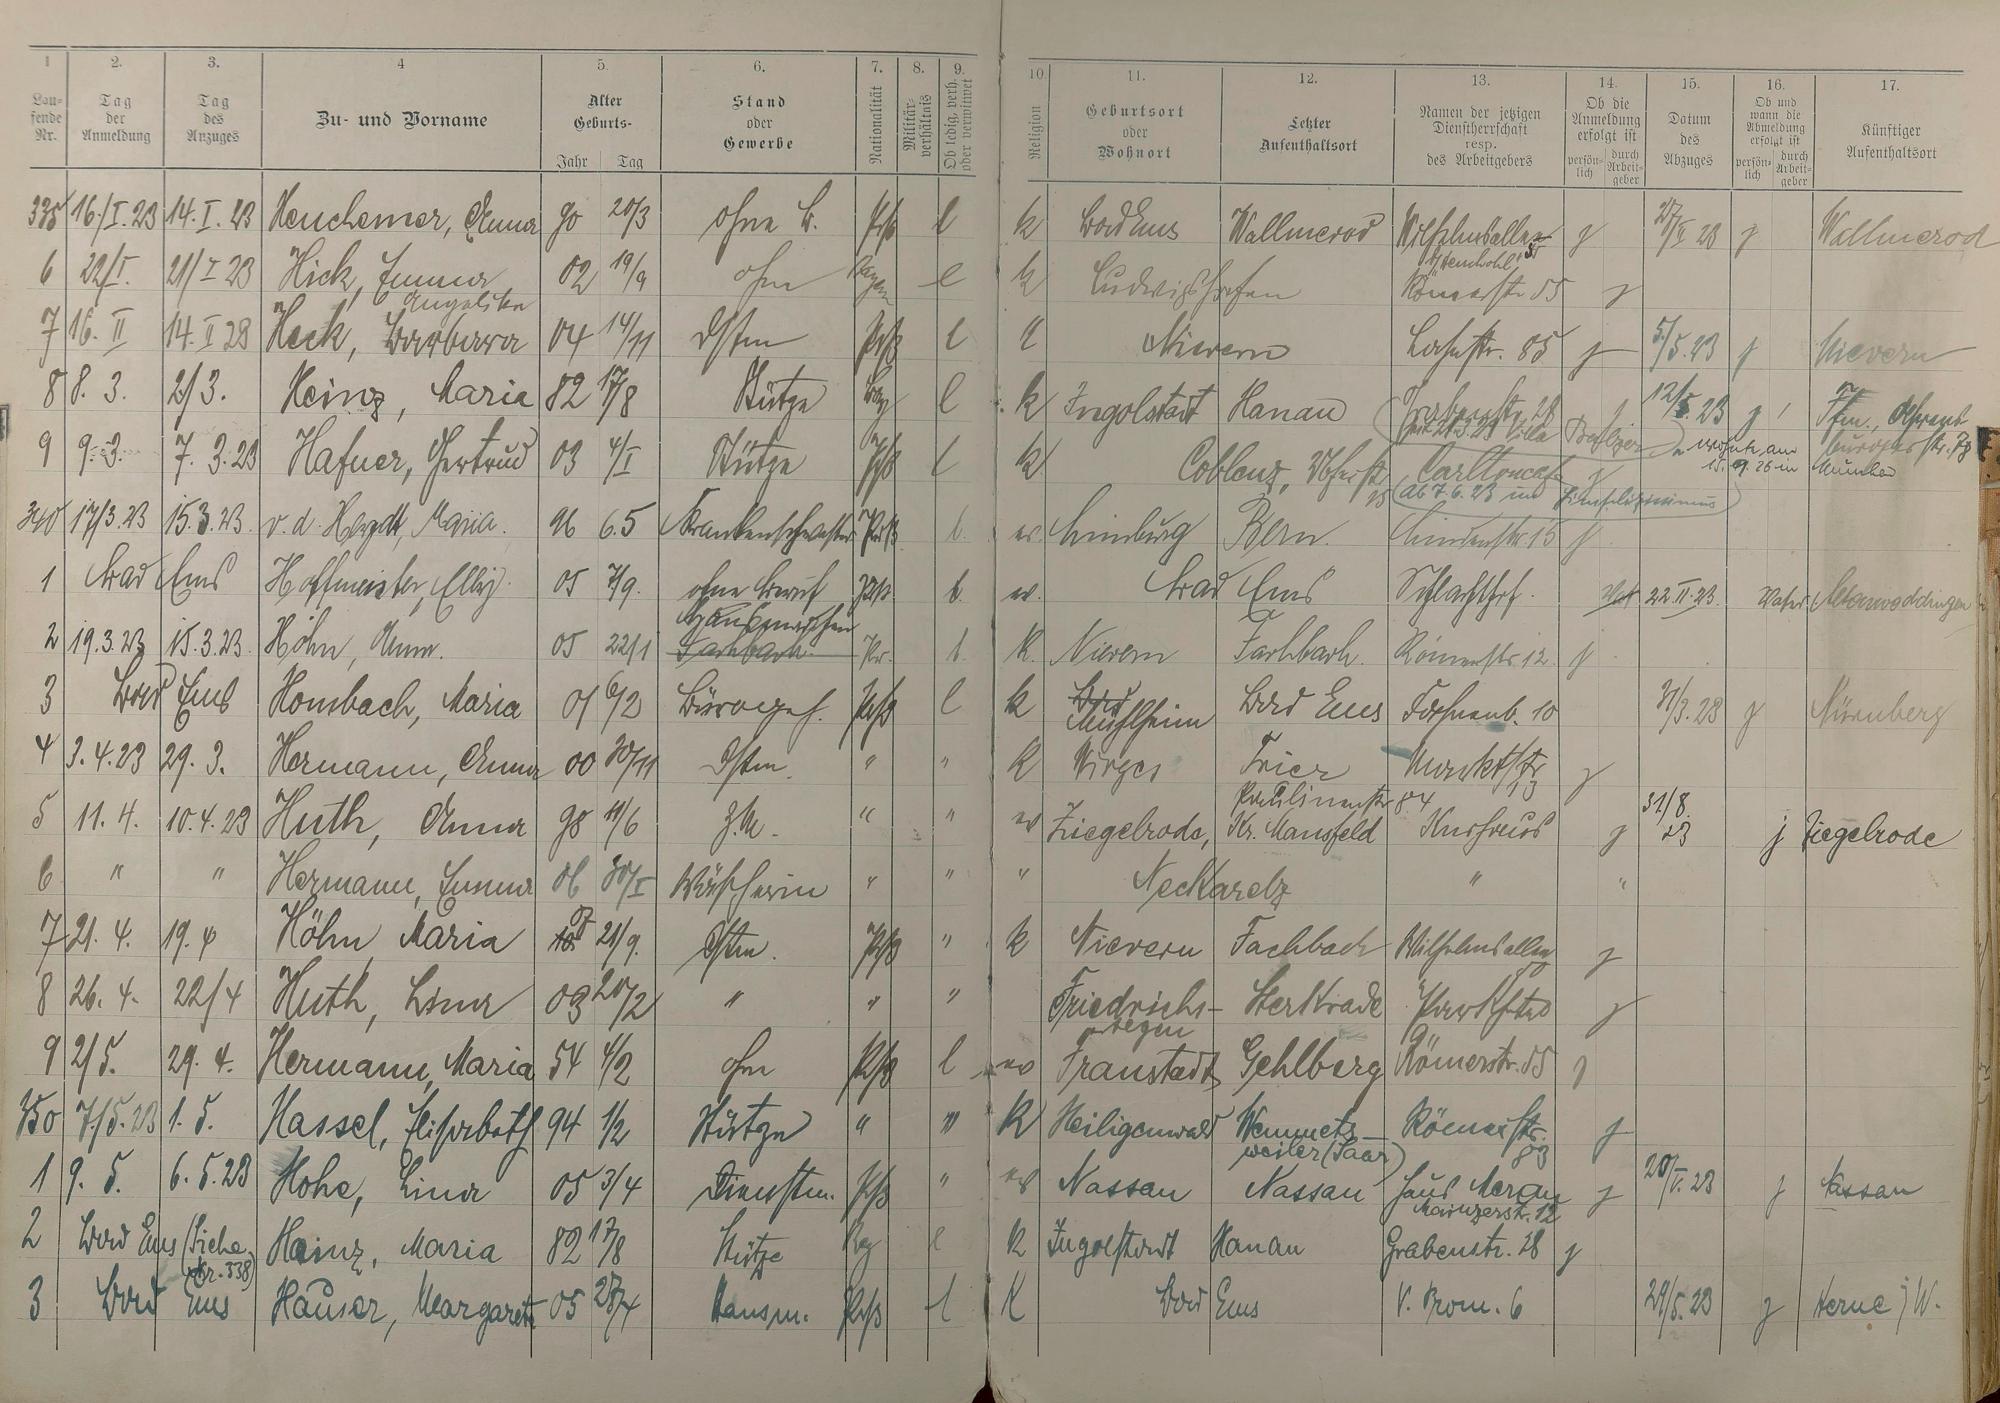 1 2. 3. 4 5. 6. 7. 8. 9. 10 11. 12. 13. 14. 15. 16. 17.
Laufende Nr. Tag der Anmeldung Tag des Anzuges Zu- und Vorname Alter Geburts- Jahr Tag Stand oder Gewerbe Nationalität Militärverhältnis Ob ledig, verh. oder verwitwet Religion Geburtsort oder Wohnort Letzter Aufenthaltsort Namen der jetzigen Dienstherrschaft resp. des Arbeitgebers Ob die Anmeldung erfolgt ist persönlich durch Arbeitgeber Datum des Abzuges Ob und wann die Abmeldung erfolgt ist persönlich durch Arbeitgeber Künftiger Aufenthaltsort
335 16./I. 23 14. I. 23 Heuchemer, Anna 90 20/3 ohne B. Prß l k Bad Ems Wallmerod Wilhelmsallee j 27/II 23 j Wallmerod
6 22/I. 21/I 23 Hick, Emma 02 19/9 ohne l k Ludwigshafen Römerstr. 55 j
Angelika
7 16. II 14. II 23 Heck, Barbara 04 14/11 Dstm Prß l " Nievern Lahnstr. 85 j 5/5. 23 j Nievern
8 8. 3. 2/3. Heinz, Maria 82 17/8 Stütze Bay l k Ingolstadt Hanau Grabenstr. 28 j 12/5. 23 j Ffm.,
9 9. 3. 7. 3. 23 Hafner, Gertrud 03 4/I Stütze Prß l k Coblenz, Carltoncafé j
ab 7. 6. 23 im
340 17/3. 23 15. 3. 23 v. d. Heydt, Maria. 96 6. 5 Krankenschwester Prß l. ev. Limburg Bern. Lindenstr. 15 j
1 Bad Ems Hoffmeister, Elly. 05 7/9. ohne Beruf l. ev. Bad Ems Schlachthof. 22. II. 23. Vater
2 19. 3. 23 15. 3. 23. Höhn, Anna. 05 22/1 Fachbach Pr. l. K. Nievern Fachbach. Römerstr. 12. j
3 Bad Ems Hombach, Maria 01 6/2 Bürogeh. Prß l k Bad Mühlheim Bad Ems 10 31/3. 23 j Nürnberg
4 3. 4. 23 29. 3. Hermann, Anna 00 30/11 Dstm. " " k Wirges Trier Marktstr. 13 j
Paulinenstr. 84
5 11. 4. 10. 4. 23 Huth, Anna 98 11/6 Z. M. " " ev Ziegelrode, Kr. Mansfeld Kurhaus j 31/8. 23 j Ziegelrode
6 " " Hermann, Emma 06 30/I Wäscherin " " " Neckarelz " "
7 21. 4. 19. 4 Höhn, Maria 07 21/9. Dstm. Prß " k Nievern Fachbach Wilhelmsallee j
8 26. 4. 22/4 Huth, Lina 03 20/2 " " " Friedrichs- Sterkrade j
segen
9 2/5. 29. 4. Hermann, Maria 54 4/2 ohne Prß l ev Fraustadt Gehlberg Römerstr. 55 j
350 7./5. 23 1. 5. Hassel, Elisabeth 94 1/2 Stütze " " K Heiligenwald Wemmets- Römerstr. j
weiler (Saar) 83
1 9. 5. 6. 5. 23 Hohe, Lina 05 3/4 Dienstm. Prß " ev Nassau Nassau Haus Meran j 20/V. 23 j Nassau
Mainzerstr. 12
2 Bad Ems (Siehe Heinz, Maria 82 17/8 Stütze Bay l K Ingolstadt Hanau Grabenstr. 28 j
Nr. 338)
3 Bad Ems Hauser, Margarete 05 27/4 Hausm. Prß l K Bad Ems V. Prom. 6 29/5. 23 j Herne i/W.